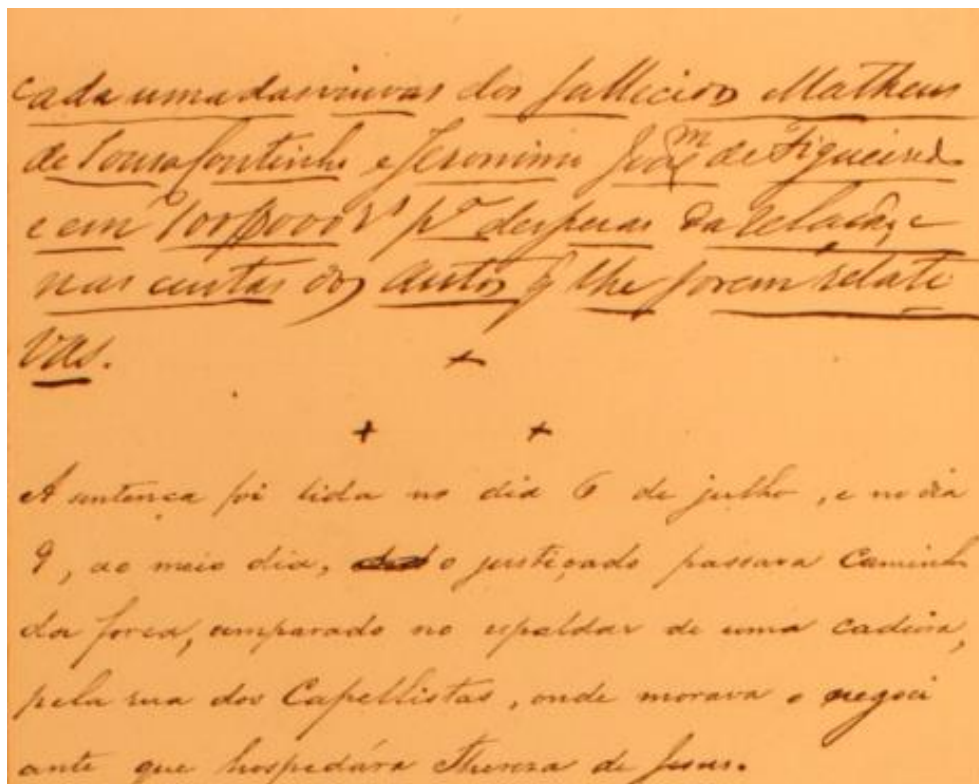 cada uma das viuvas dos fallecidos Matheus
de Sousa Coutinho e Jeronimo Joaq.m de Figueiredo
e em 100$000 rs p.a despesas da relação, e
nas custas dos autos q lhe forem relati
vas.
+
+ +
A sentença foi lida no dia 6 de julho, e no dia
9, ao meio dia, o justiçado passara caminho
da forca, amparado no espaldar de uma cadeira,
pela rua dos Capellistas, onde morava o negoci
ante que hospedára Thereza de Jesus.